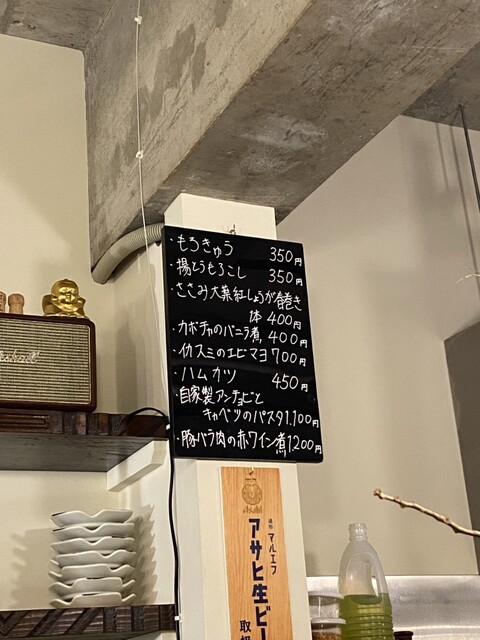 ・もろきゅう 350円
・揚とうもろこし 350円
・ささみ大葉紅しょうが巻き
体 400円
・カボチャのバニラ煮 400円
・イカスミのエビマヨ 700円
・ハムカツ 450円
・自家製アンチョビと
キャベツのパスタ 1,100円
・豚バラ肉の赤ワイン煮 1,200円
Marshall
Asahi
通称 マルエフ
アサヒ生ビー
取扱